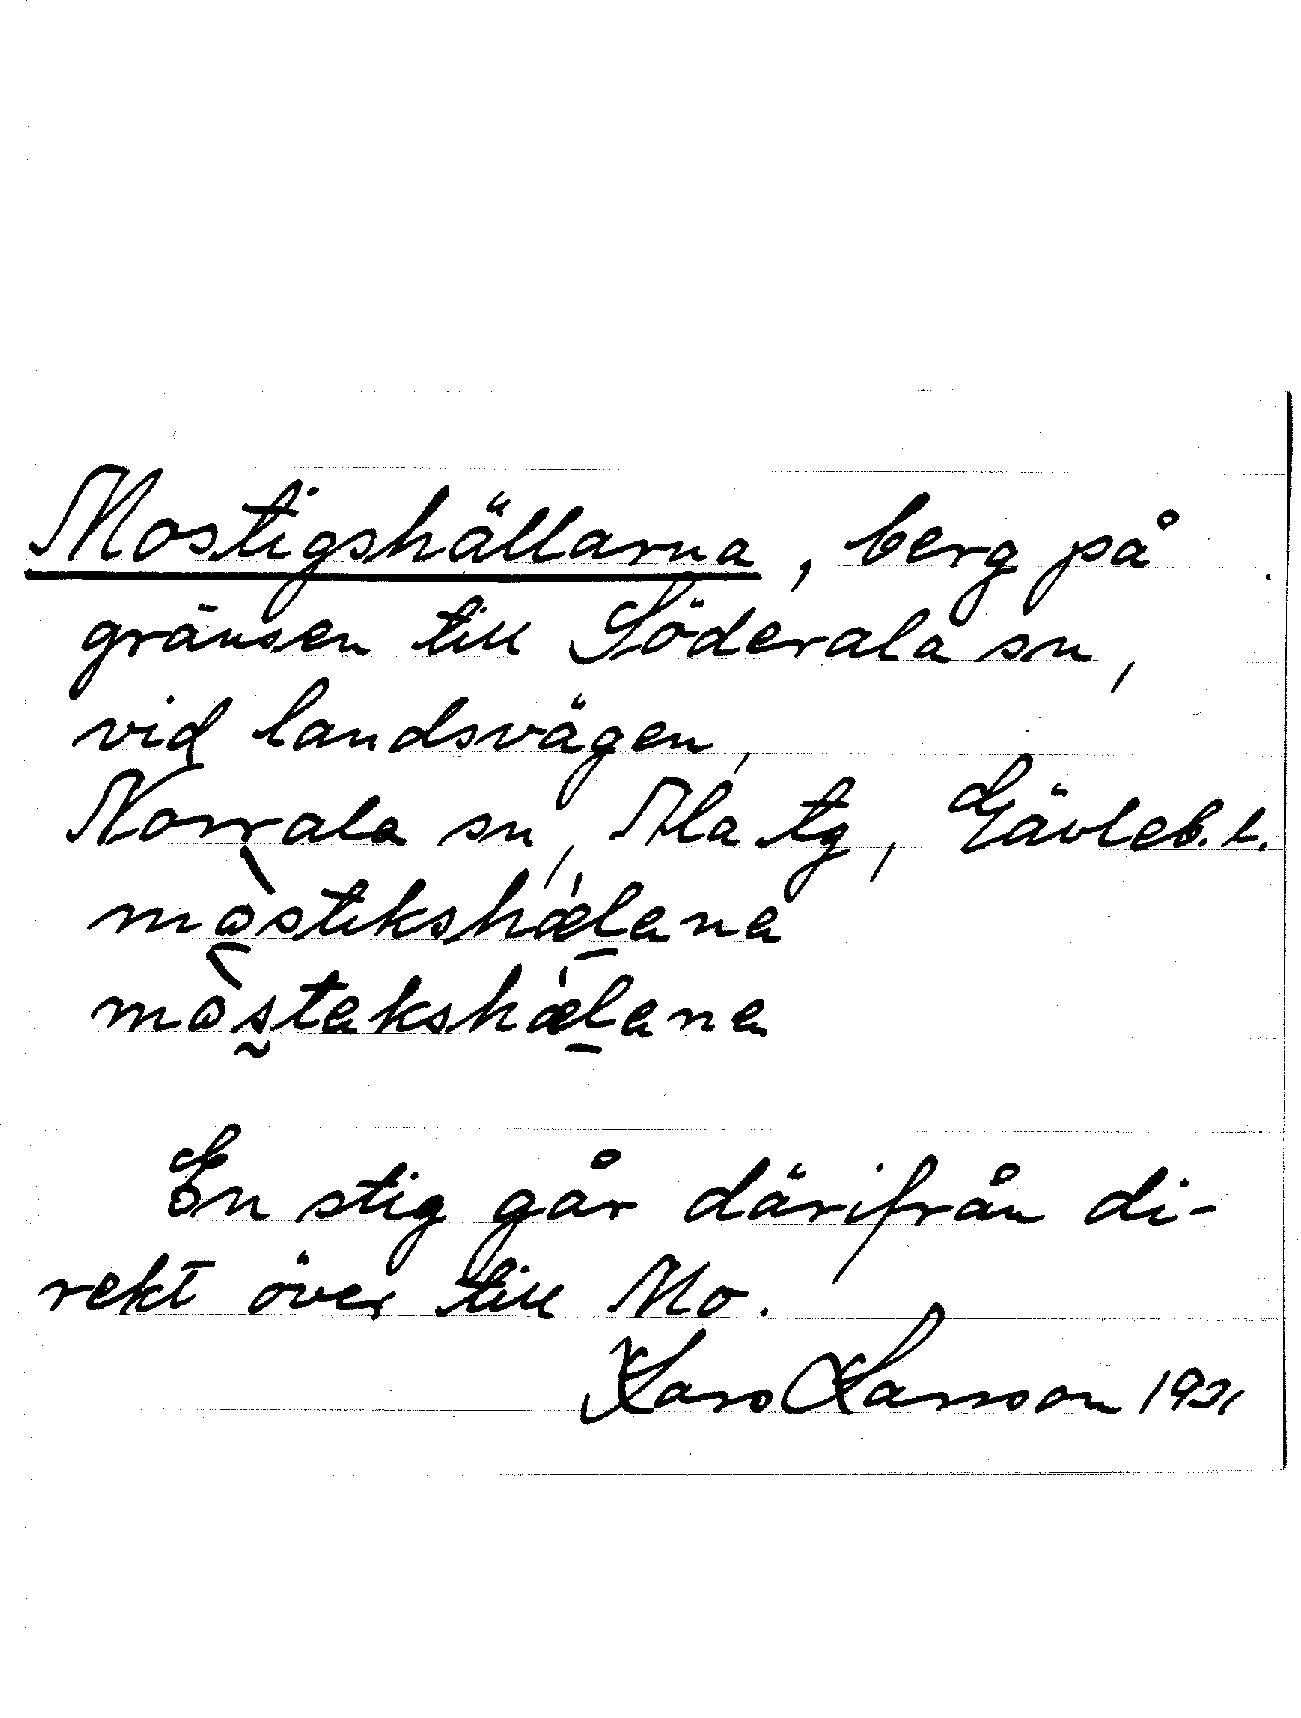 Mostigshällarna, berg på
gränsen till Söderala sn,
vid landsvägen,
Norrala sn, Ala tg, Gävleb. l.
mòstikshǽl̲ana
mòs̰takshǽl̲ana
En stig går därifrån di-
rekt över till Mo.
Lars Larsson 1931